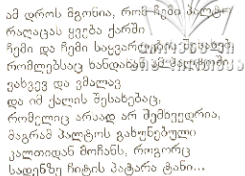 ამ დროს მგონია, რომ ჩემი პალტო
რაღაცას ყვება ქარში
ჩემი და ჩემი საყვარელი
რომლებსაც ხანდახან ამ პალტოში
ვახვევ და ვმალავ
და იმ ქალის შესახებაც,
რომელიც არსად არ შემხვედრია,
მაგრამ პალტოს გახუნებული
კალთიდან მოჩანს, როგორც
სადენზე ჩიტის პატარა ტანი...